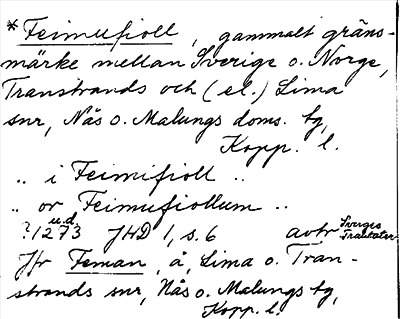 *Feimufioll, gammalt gräns-
märke mellan Sverige o. Norge,
Transtrands och (el.) Lima
snr, Näs o. Malungs doms. tg,
Kopp. l.
.. i Feimifioll ..
.. or Feimufiollum ..
u.d.
?1273 JHD 1, s. 6 avtr Sveriges Traktater
Jfr Feman, å, Lima o. Tran-
strands snr, Näs o. Malungs tg,
Kopp. l.